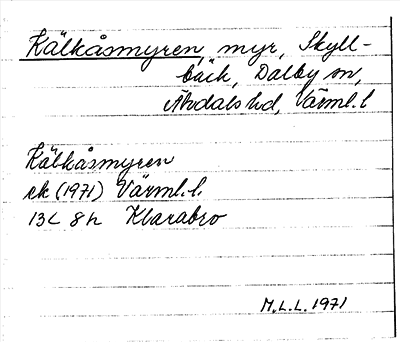 Kälkåsmyren, myr, Skyll-
bäck, Dalby sn,
Älvdals hd, Värml. l
Kälkåsmyren
ek (1971) Värml. l.
13C 8h Klarabro
M.L.L. 1971